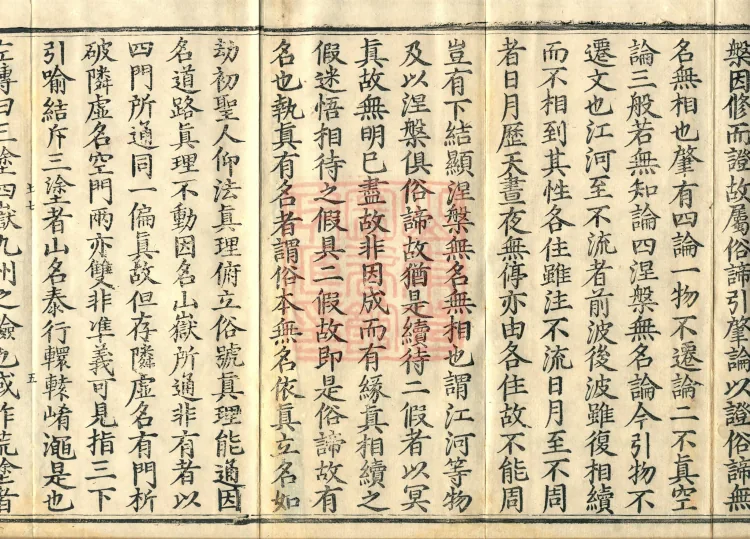 槃因修而證故屬俗諦引肇論以證俗諦無
名無相也肇有四論一物不遷論二不真空
論三般若無知論四涅槃無名論今引物不
遷文也江河至不流者前波後波雖復相續
而不相到其性各住雖注不流日月至不周
者日月歷天晝夜無停亦由各住故不能周
豈有下結顯涅槃無名無相也謂江河等物
及以涅槃俱俗諦故猶是續待二假者以冥
真故無明已盡故非因成而有緣真相續之
假迷悟相待之假具二假故即是俗諦故有
名也執真有名者謂俗本無名依真立名如
劫初聖人仰法真理俯立俗號真理能通因
名道路真理不動因名山嶽所通非有者以
四門所通同一偏真故但存隣虛名有門析
破隣虛名空門兩亦雙非準義可見指三下
引喻結斥三塗者山名泰行轘轅崤澠是也
左傳曰三塗四嶽九州之險也或作荒塗者